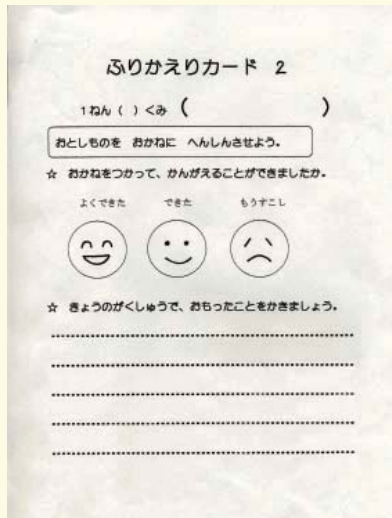 ふりかえりカード 2
1ねん ( ) くみ (          )
おとしものを おかねに へんしんさせよう。
☆ おかねをつかって、かんがえることができましたか。
よくできた できた もうすこし
☆ きょうのがくしゅうで、おもったことをかきましょう。